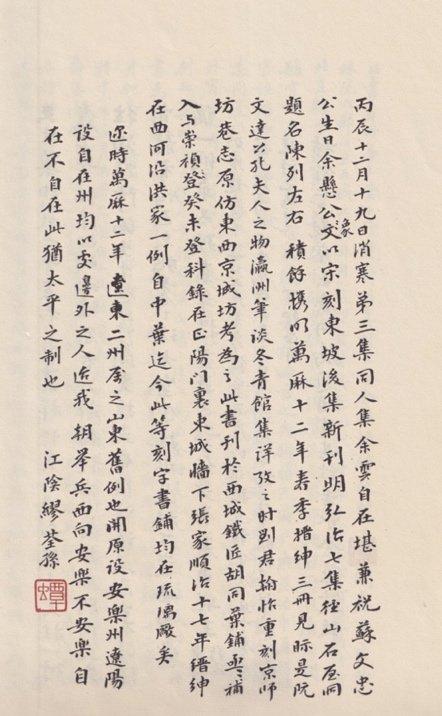 丙辰十二月十九日消寒弟三集同人集余雲自在堪兼祝蘇文忠
公生日余懸公文象以宋刻東坡後集新刊明弘治七集徑山石屋洞
題名陳列左右 積餘攜明萬厤十二年春季搢紳三冊見眎是阮
文達公孔夫人之物瀛洲筆談冬青館集詳攷之時別君翰怡重刻京師
坊巷志原仿東西京城坊考為之此書刊於西城鐵匠胡同葉鋪
入与崇禎登癸未登科錄在正陽門裏東城牆下張家順治十七年縉紳
在西河沿洪家一例自中葉迄今此等刻字書鋪均在琉璃厰矣
時萬厤十二年遼東二州考之山東舊例也開原設安樂州遼陽
設自在州均以處邊外之人迨我朝舉兵西向安樂不安樂自
在不自在此猶太平之制也 江陰繆荃孫